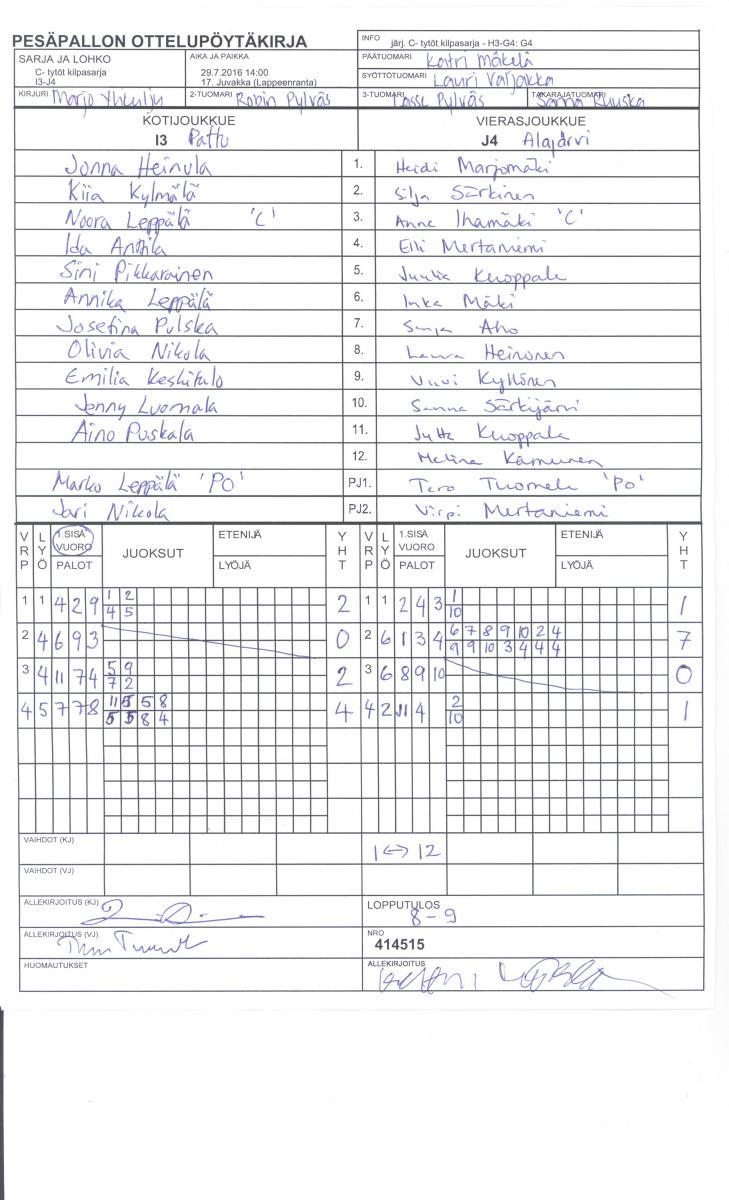 PESÄPALLON OTTELUPÖYTÄKIRJA
INFO järj. C- tytöt kilpasarja - H3-G4: G4
SARJA JA LOHKO
C- tytöt kilpasarja
I3-J4
AIKA JA PAIKKA
29.7.2016 14:00
17. Juvakka (Lappeenranta)
PÄÄTUOMARI Katri Mäkelä
SYÖTTÖTUOMARI Lauri Varjakka
KIRJURI Marjo 2-TUOMARI Robin Pylväs 3-TUOMARI Lasse Pylväs TAKARAJATUOMARI Sanna Ruuska
KOTIJOUKKUE VIERASJOUKKUE
I3 Pattu J4 Alajärvi
Jonna Heinula 1. Heidi Marjomäki
Kiia Kylmälä 2. Silja Särkinen
Noora Leppälä 'C' 3. Anne Ihamäki 'C'
Ida Anttila 4. Elli Mertaniemi
Sini Pikkarainen 5. Juulia Kuoppala
Annika Leppälä 6. Inka Mäki
Josefina Pulska 7. Sonja Aho
Olivia Nikola 8. Laura Heinonen
Emilia Keskitalo 9. Vuvi Kyllönen
Jenny Luomala 10. Sanna Särkijärvi
Aino Puskala 11. Jutta Kuoppala
12. Melina Kamunen
Marko Leppälä 'PO' PJ1. Tero Tuomela 'PO'
Jari Nikola PJ2. Virpi Mertaniemi
VRP LYÖ 1.SISÄ VUORO PALOT JUOKSUT ETENIJÄ LYÖJÄ YHT VRP LYÖ 1.SISÄ VUORO PALOT JUOKSUT ETENIJÄ LYÖJÄ YHT
1 1 4 2 9 1 2 2 1 1 2 4 3 1 1
4 5 10
2 4 6 9 3 0 2 6 1 3 4 6 7 8 9 10 2 4 7
9 9 10 3 4 4 4
3 4 11 7 4 5 9 2 3 6 8 9 10 0
7 2
4 5 7 7 8 11 5 5 8 4 4 2 11 4 2 1
5 5 8 4 10
VAIHDOT (KJ) 1 <-> 12
VAIHDOT (VJ)
ALLEKIRJOITUS (KJ) LOPPUTULOS
8-9
ALLEKIRJOITUS (VJ) NRO
414515
HUOMAUTUKSET ALLEKIRJOITUS